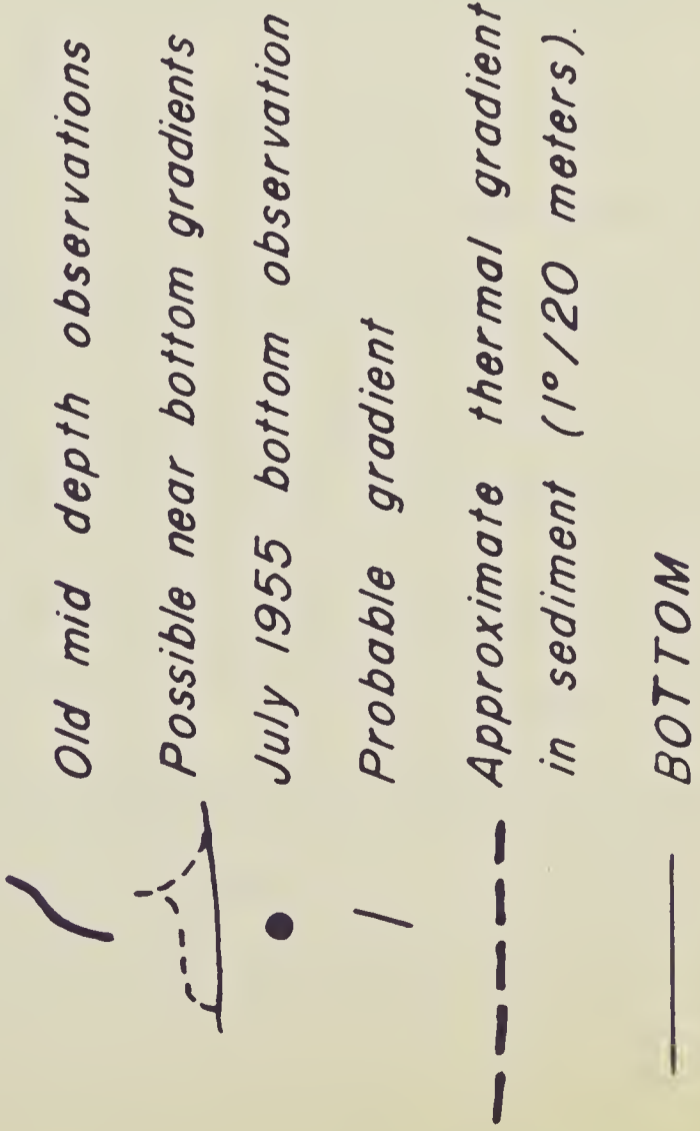 Old mid depth observations
Possible near bottom gradients
July 1955 bottom observation
Probable gradient
Approximate thermal gradient
in sediment (1°/20 meters).
BOTTOM